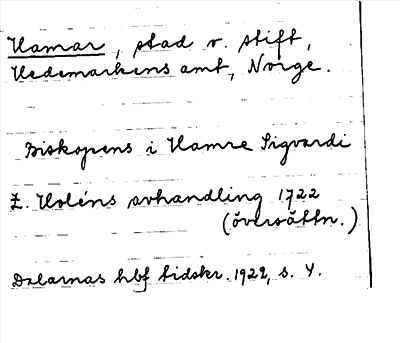 Hamar, stad o. stift,
Hedemarkens amt, Norge.
Biskopens i Hamre Sigvardi
Z. Holéns avhandling 1722
(översättn.)
Dalarnas hbf tidskr. 1922, s. 4.